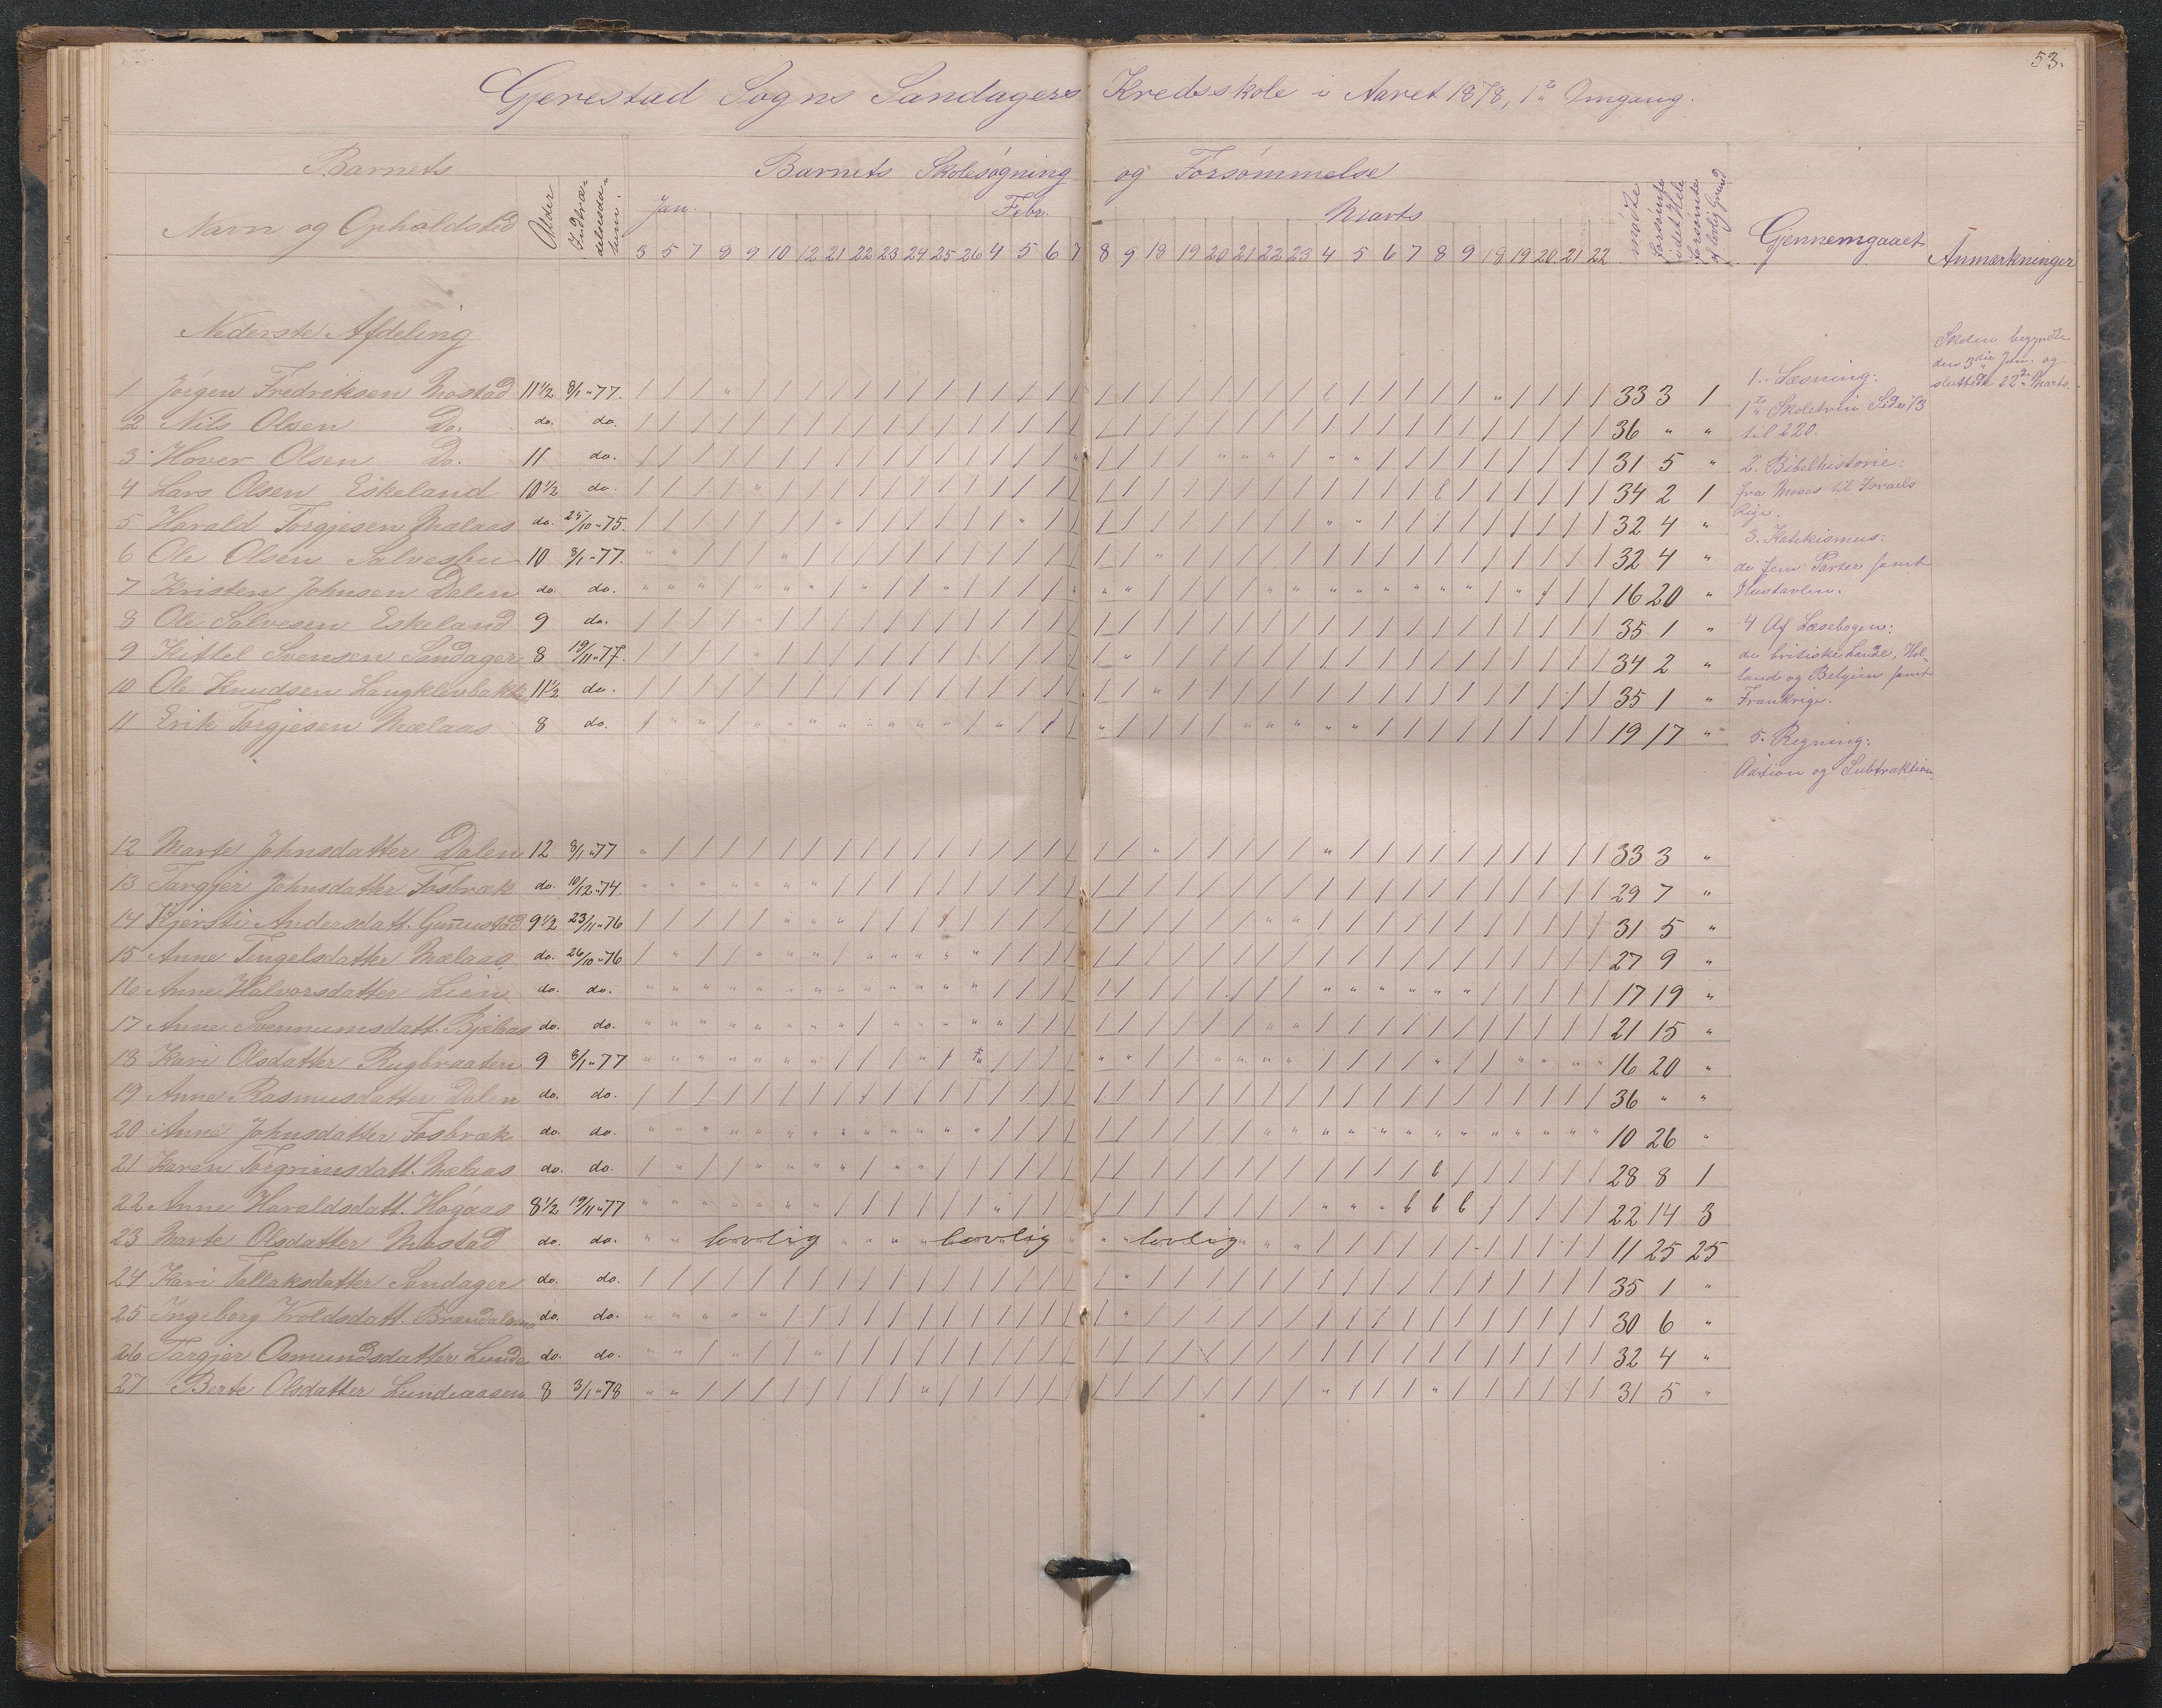 53.
Gjerestad Sogns Sandagers Kredsskole i Aaret 1878, 1ste Omgang.
Barnets
Navn og Opholdsted
Alder
Indtrædelsesdatum.
Barnets Skolesøgning og Forsømmelse
Jan. Febr. Marts
3 5 7 8 9 10 12 21 22 23 24 25 26 4 5 6 7 8 9 18 19 20 21 22 23 4 5 6 7 8 9 18 19 20 21 22
mødte
forsømte i det Hele
forsømte af lovlig Grund
Gjennemgaaet
Anmærkninger
Nederste Afdeling
1 Jørgen Fredriksen Mostad 11 1/2 8/1 " 77. 33 3 1
2 Nils Olsen Do. do. do. 36 " "
3 Hover Olsen Do. 11 do. 31 5 "
4 Lars Olsen Eskeland 10 1/2 do. 34 2 1
5 Harald Torgjesen Mælaas do. 25/10 " 75. 32 4 "
6 Ole Olsen Salvesbu 10 8/1 " 77. 32 4 "
7 Kristen Johnsen Dalen do. do. 16 20 "
8 Ole Salvesen Eskeland 9 do. 35 1 "
9 Kittel Svensen Sandager 8 19/11 " 77. 34 2 "
10 Ole Knudsen Langklevbakke 11 1/2 do. 35 1 "
11 Erik Torgjesen Mælaas 8 do. 19 17 "
12 Marte Johnsdatter Dalen 12 8/1 " 77 33 3 "
13 Targjer Johnsdatter Fosbræk do. 10/12 " 74. 29 7 "
14 Kjersti Andersdatt. Gunnustad 9 1/2 23/11 " 76 31 5 "
15 Anne Tengelsdatter Mælaas do. 26/10 " 76 27 9 "
16 Anne Halvorsdatter Lien do. do. 17 19 "
17 Anne Svennumsdatt. Bjælaas do. do. 21 15 "
18 Kari Olsdatter Rugbraaten 9 8/1 " 77 16 20 "
19 Anne Rasmusdatter Dalen do. do. 36 " "
20 Anne Johnsdatter Fosbræk do. do. 10 26 "
21 Karen Torgrimsdatt. Mælaas do. do. 28 8 1
22 Anne Haraldsdatt. Høgaas 8 1/2 19/11 " 77 22 14 3
23 Marte Olsdatter Mostad do. do. lovlig lovlig lovlig 11 25 25
24 Kari Tallaksdatter Sandager do. do. 35 1 "
25 Ingeborg Vroldsdatt. do. do. 30 6 "
26 Targjer Osmundsdatter Lunde do. do. 32 4 "
27 Berte Olsdatter Lundeaasen 8 3/1 " 78 31 5 "
1. Læsning:
1ste Skoletrin Side 73
til 220.
2. Bibelhistorie:
fra Moses til Israels
Rige.
3. Katekismus:
de fem Parter samt
Hustavlen.
4 Af Læsebogen:
de britiske Lande, Hol-
land og Belgien samt
Frankrige.
5. Regning:
Adition og Subtraktion
Skolen begyndte
den 3die Jan. og
sluttede 22de Marts.